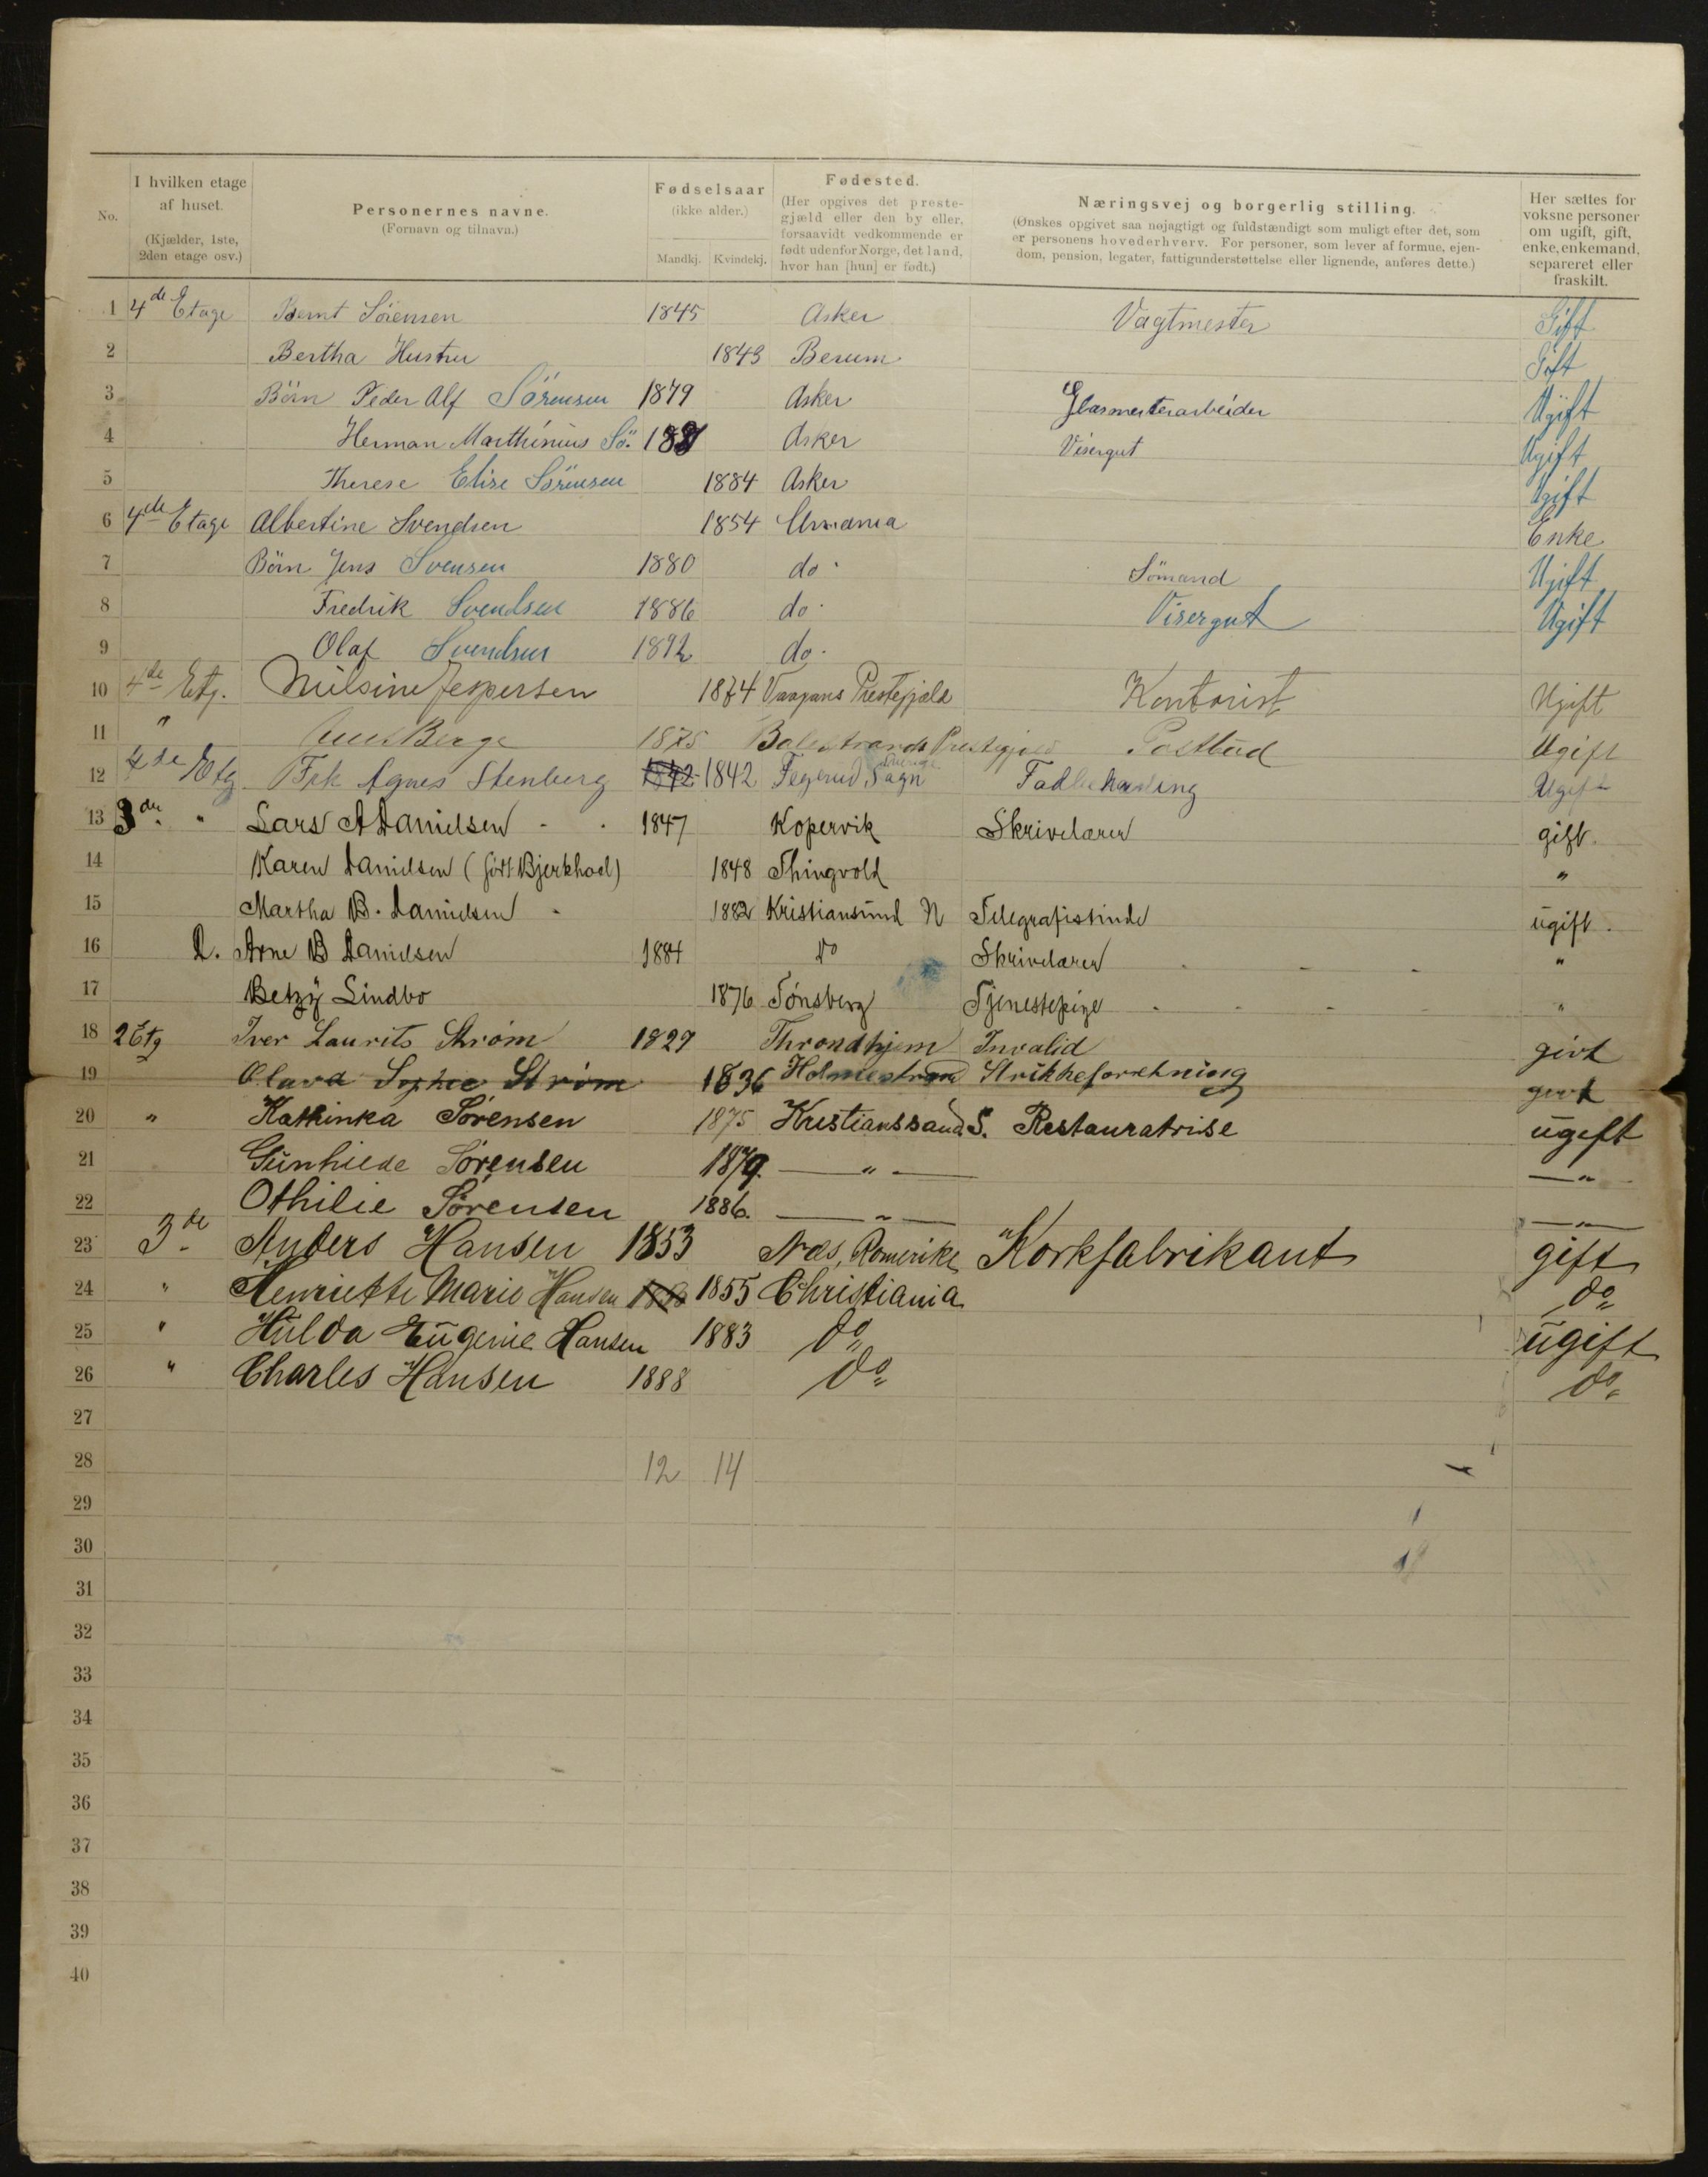 No.
I hvilken etage af huset.
(Kjælder, 1ste, 2den etage osv.)
Personernes navne.
(Fornavn og tilnavn.)
Fødselsaar
(ikke alder.)
Mandkj. Kvindekj.
Fødested.
(Her opgives det prestegjæld eller den by eller, forsaavidt vedkommende er født udenfor Norge, det land, hvor han [hun] er født.)
Næringsvej og borgerlig stilling.
(Ønskes opgivet saa nøjagtigt og fuldstændigt som muligt efter det, som er personens hovederhverv. For personer, som lever af formue, ejendom, pension, legater, fattigunderstøttelse eller lignende, anføres dette.)
Her sættes for voksne personer om ugift, gift, enke, enkemand, separeret eller fraskilt.
1 4de Etage Bernt Sörensen 1845 Asker Vagtmester Gift
2 Bertha Hustru 1843 Berum Gift
3 Börn Peder Alf Sörensen 1879 Asker Glasmesterarbeider Ugift
4 Herman Marthinius Sö. 1881 Asker Visergut Ugift
5 Therese Elise Sörensen 1884 Asker Ugift
6 4de Etage Albertine Svendsen 1854 Enke
7 Börn Jens Svensen 1880 do. Sömand Ugift
8 Fredrik Svendsen 1886 do. Visergut Ugift
9 Olaf Svendsen 1892 do.
10 4de Etg. Nilsine Jespersen 1874 Vaagans Prestegjæld Kontorist Ugift
11 " Berge 1875 Balestrands Prestegjeld Postbud Ugift
12 4de Etg. Frk Agnes Stenberg 1842 1842 Sogn Sverige Ugift
13 3de. " Lars A Danielsen 1847 Kopervik Skrivelærer gift.
14 Karen Danielsen (født 1848 Thingvold "
15 Martha B. Danielsen 1882 Kristiansund N Telegrafistinde ugift.
16 D. Arne B Danielsen 1884 Do Skrivelærer "
17 Betzy Lindbo 1876 Tönsberg Tjenestepige "
18 2 Etg Iver Laurits Strøm 1829 Throndhjem Invalid givt
19 Olava Sophie Strøm 1836 Holmestrand Strikkeforretning givt
20 " Kathinka Sørensen 1875 Kristianssand S. Restauratrise ugift
21 Gunhilde Sørensen 1879. — " — — " —
22 Othilie Sørensen 1886. — " — — " —
23 3de Anders Hansen 1853 Næs, Romerike Korkfabrikant gift
24 " Henriette Marie Hansen 1855 Christiania do
25 " Hulda Eugenie Hansen 1883 do ugift
26 " Charles Hansen 1888 do do
27
28 12 14
29
30
31
32
33
34
35
36
37
38
39
40